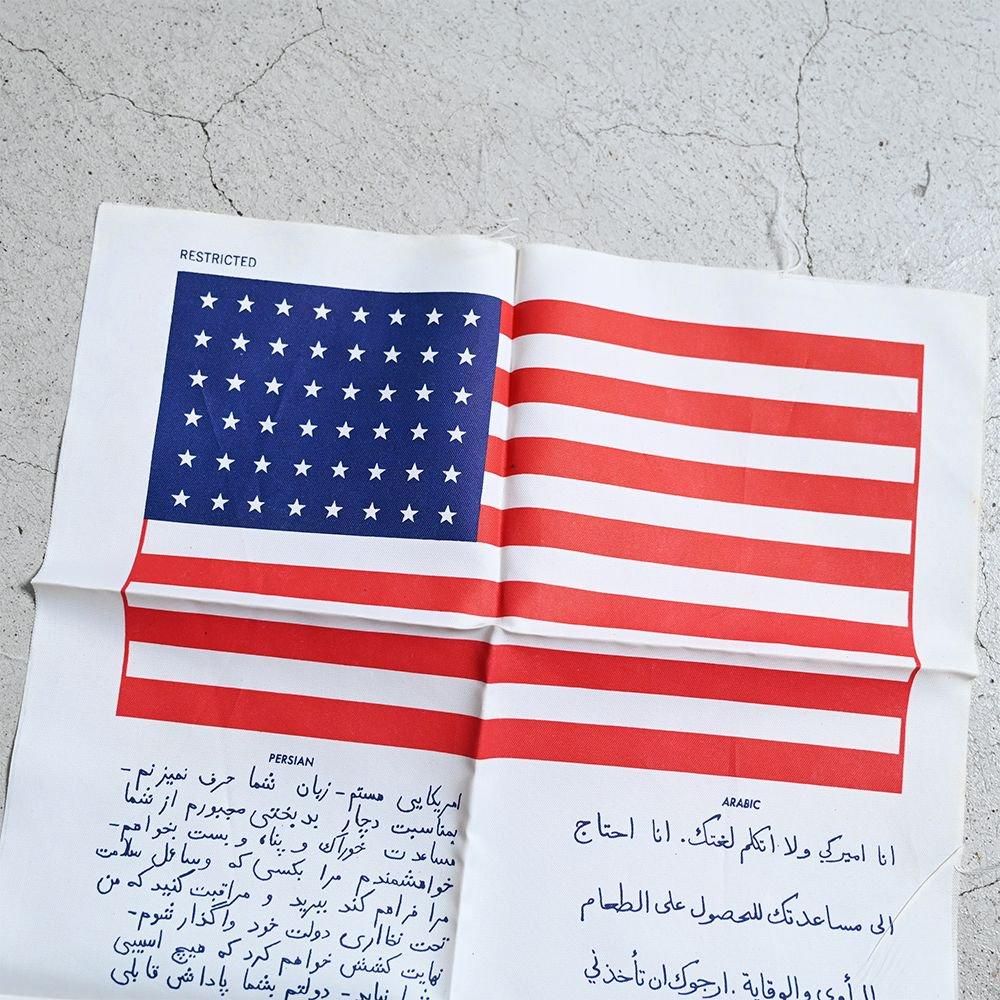 RESTRICTED
PERSIAN
امریکایی هستم - زبان شما حرف نمیزنم -
بمناسبت دچار بدبختی مجبورم از شما
مساعدت خوراک و پناه و بست بخواهم -
خواهشمندم مرا بکسی که وسائل سلامت
مرا فراهم کند ببرید و مراقبت کنید که من
تحت نظاری دولت خود واگذار شوم -
نهایت کشش خواهم کرد که هیچ اسیبی
بشما نیاید - دولتم بشما پاداش قابلی
ARABIC
انا اميركي ولا أتكلم لغتك. انا احتاج
الى مساعدتك للحصول على الطعام
والمأوى والوقاية. ارجوك ان تأخذني